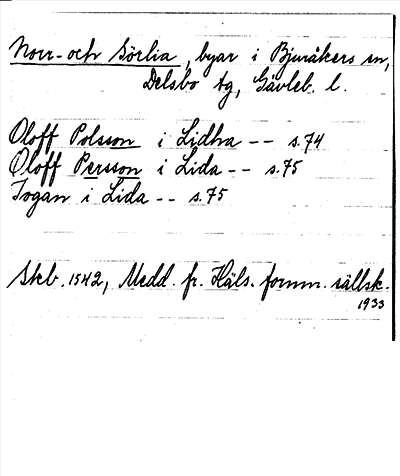 Norr- och Sörlia, byar i Bjuråkers sn,
Delsbo tg, Gävleb. l.
Oloff Polsson i Lidha -- s.74
Oloff Persson i Lida -- s.75
Jogan i Lida -- s.75
Skb. 1542, Medd. fr. Häls. fornm. sällsk.
1933